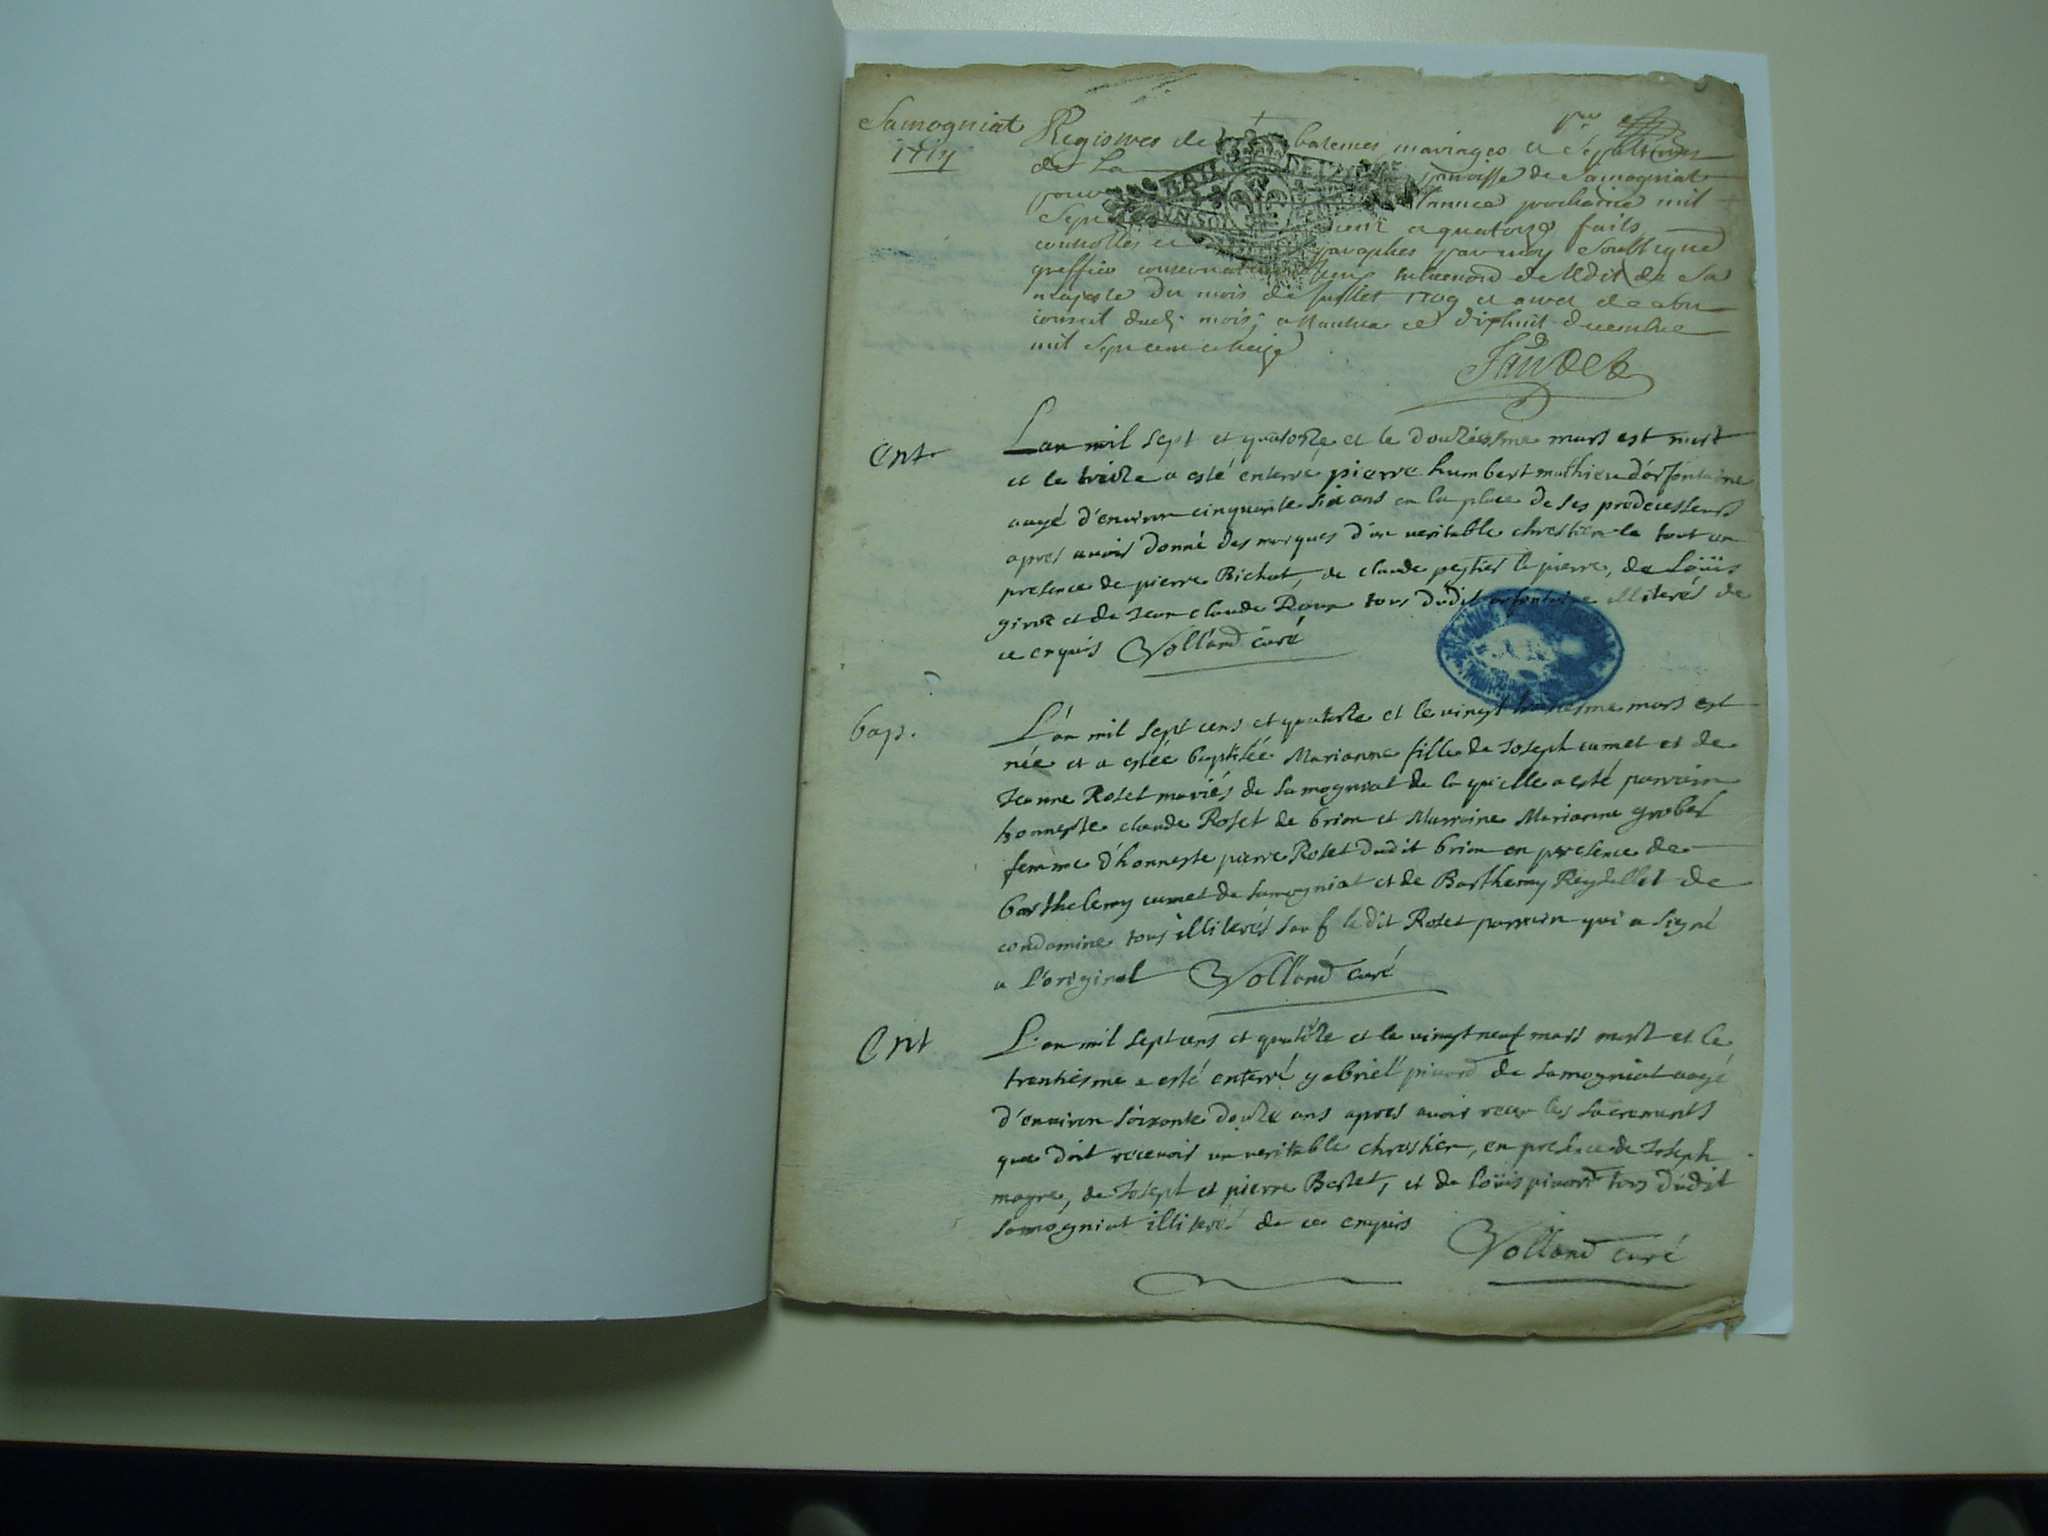 Samogniat
1714
Registres de batemes mariages et Sepultures
de La paroisse de Samogniat
pour l'année prochaine mil
Sept cent quatorze faits
controllés et paraphes par moy Soussigné
greffier conservateur au desir de l'Edit de Sa
majesté du mois de Juillet 1709 et arrest de son
conseil dud. mois, a Nantua ce dixhuit decembre
mil Sept cent treize
Ent.
L'an mil sept et quatorze et le douziesme mars est mort
et le treize a esté enterré pierre humbert mathieu d'orfontaine
aagé d'environ cinquante six ans en la place de ses predecesseurs
apres avoir donné des marques d'un veritable chrestien le tout en
presence de pierre Bichat, de claude peytier le pierre, de Loüis
girod et de Jean claude Roux tous dudit orfontaine illiterés de
ce enquis Volland curé
bap.
L'an mil sept cens et quatorze et le vingt troisiesme mars est
née et a estée baptisée Marianne fille de Joseph cumet et de
Jeanne Roset mariés de samogniat de laquelle a esté parrain
honneste claude Roset de brion et Marraine Marianne grobel
femme d'honneste pierre Roset dudit brion en presence de
barthelemy cumet de samogniat et de Barthemy Reydellet de
condamine tous illiterés sauf le dit Roset parrain qui a signé
a l'original Volland curé
Ent
L'an mil sept cens et quatorze et le vingt neuf mars mort et le
trentiesme a esté enterré gabriel pinard de samogniat aagé
d'environ soixante douze ans apres avoir receu les sacrements
que doit recevoir un veritable chrestien, en presence de Joseph
magre, de Joseph et pierre Berlet, et de loüis pinard tous dudit
samogniat illiterés de ce enquis
Volland curé